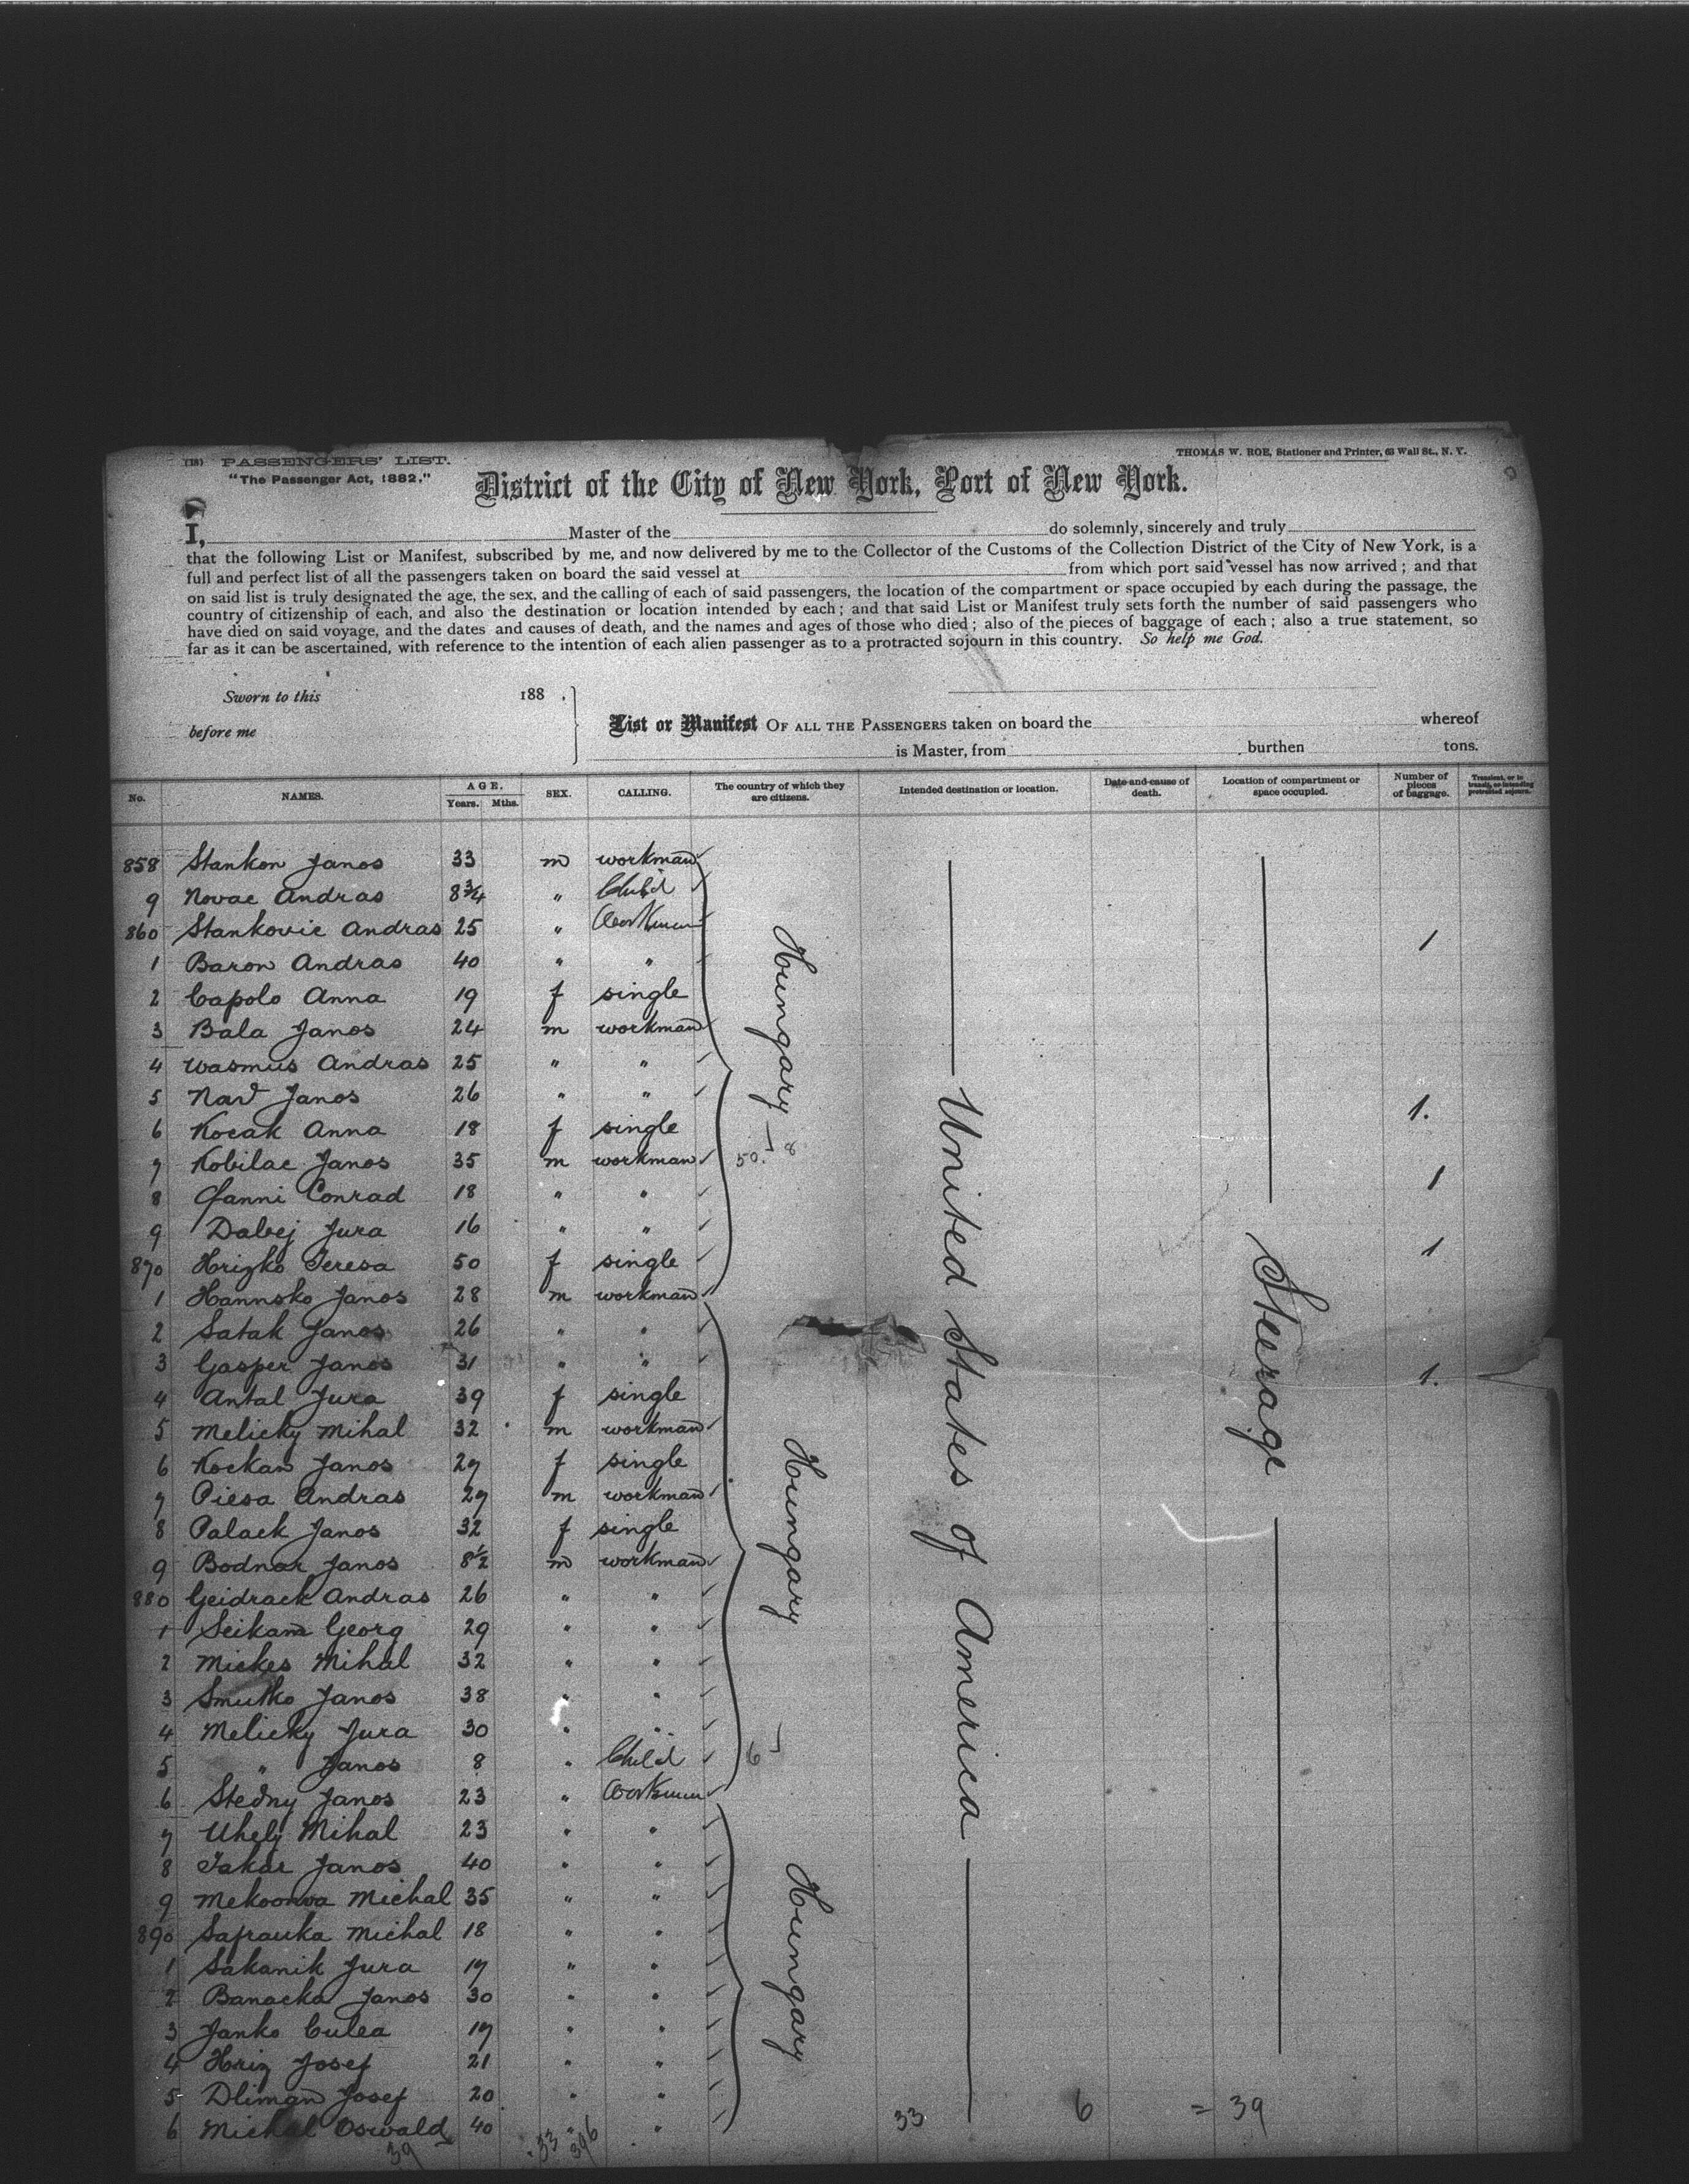 (18) PASSENGERS' LIST.
THOMAS W. ROE, Stationer and Printer, 63 Wall St., N. Y.
"The Passenger Act, 1882."
District of the City of New York, Port of New York.
I, Master of the do solemnly, sincerely and truly
that the following List or Manifest, subscribed by me, and now delivered by me to the Collector of the Customs of the Collection District of the City of New York, is a
full and perfect list of all the passengers taken on board the said vessel at from which port said vessel has now arrived; and that
on said list is truly designated the age, the sex, and the calling of each of said passengers, the location of the compartment or space occupied by each during the passage, the
country of citizenship of each, and also the destination or location intended by each; and that said List or Manifest truly sets forth the number of said passengers who
have died on said voyage, and the dates and causes of death, and the names and ages of those who died; also of the pieces of baggage of each; also a true statement, so
far as it can be ascertained, with reference to the intention of each alien passenger as to a protracted sojourn in this country. So help me God.
Sworn to this 188 .
before me
List or Manifest OF ALL THE PASSENGERS taken on board the whereof
is Master, from burthen tons.
No. NAMES. AGE. Years. Mths. SEX. CALLING. The country of which they are citizens. Intended destination or location. Date and cause of death. Location of compartment or space occupied. Number of pieces of baggage. Transient, or in transit, or intending protracted sojourn.
858 Stankon Janos 33 m workman
9 Novac Andras 8 3/4 " Child
860 Stankovic Andras 25 " Workman 1
1 Baron Andras 40 " "
2 Capolo Anna 19 f single
3 Bala Janos 24 m workman
4 Wasmus Andras 25 " "
5 Nad Janos 26 " " 1.
6 Kocak Anna 18 f single
7 Kobilac Janos 35 m workman
8 Fanni Conrad 18 " " 1
9 Dabej Jura 16 " "
870 Hrizko Teresa 50 f single 1
1 Hannsko Janos 28 m workman
2 Satak Janos 26 " "
3 Gasper Janos 31 " "
4 Antal Jura 39 f single 1.
5 Melicky Mihal 32 m workman
6 Kockan Janos 27 f single
7 Piesa Andras 27 m workman
8 Palack Janos 32 f single
9 Bodnar Janos 8 1/2 m workman
880 Geidrack Andras 26 " "
1 Seikam Georg 29 " "
2 Mickes Mihal 32 " "
3 Smutko Janos 38 " "
4 Melicky Jura 30 " "
5 " Janos 8 " Child
6 Stedny Janos 23 " Workman
7 Uhelj Mihal 23 " "
8 Takar Janos 40 " "
9 Mekoonva Michal 35 " "
890 Safrauka Michal 18 " "
1 Sakanik Jura 17 " "
2 Banacka Janos 30 " "
3 Janko Culea 17 " "
4 Hriz Josef 21 " "
5 Dliman Josef 20 " "
6 Michal Oswald 40 " "
Hungary
Hungary
Hungary
United States of America
Steerage
50. 8
6
33 6 = 39
39 33 396